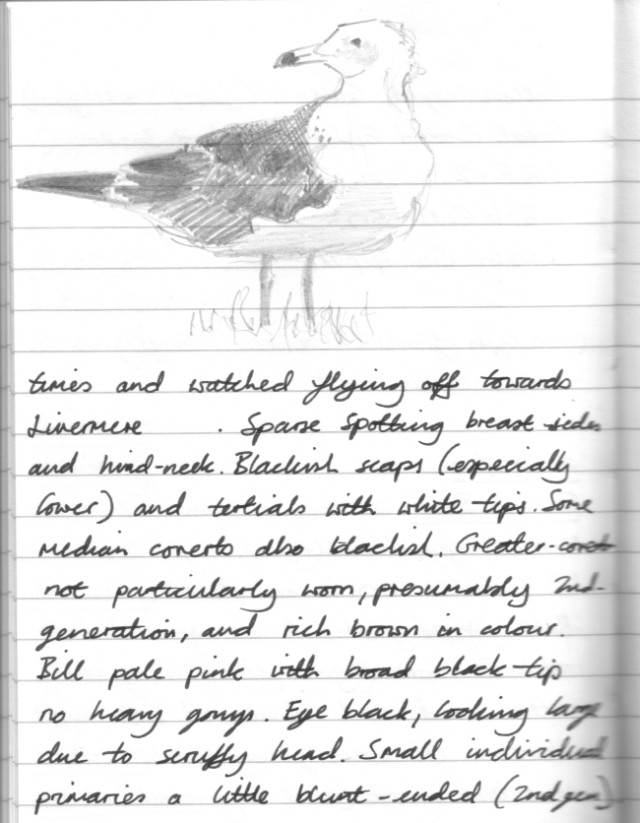 times and watched flying off towards
Livermere . Sparse spotting breast-sides
and hind-neck. Blackish scaps (especially
lower) and tertials with white tips. Some
median coverts also blackish. Greater-covert
not particularly worn, presumably 2nd-
generation, and rich brown in colour.
Bill pale pink with broad black-tip
no heavy gonys. Eye black, looking large
due to scruffy head. Small individual
primaries a little blunt-ended (2nd gen)